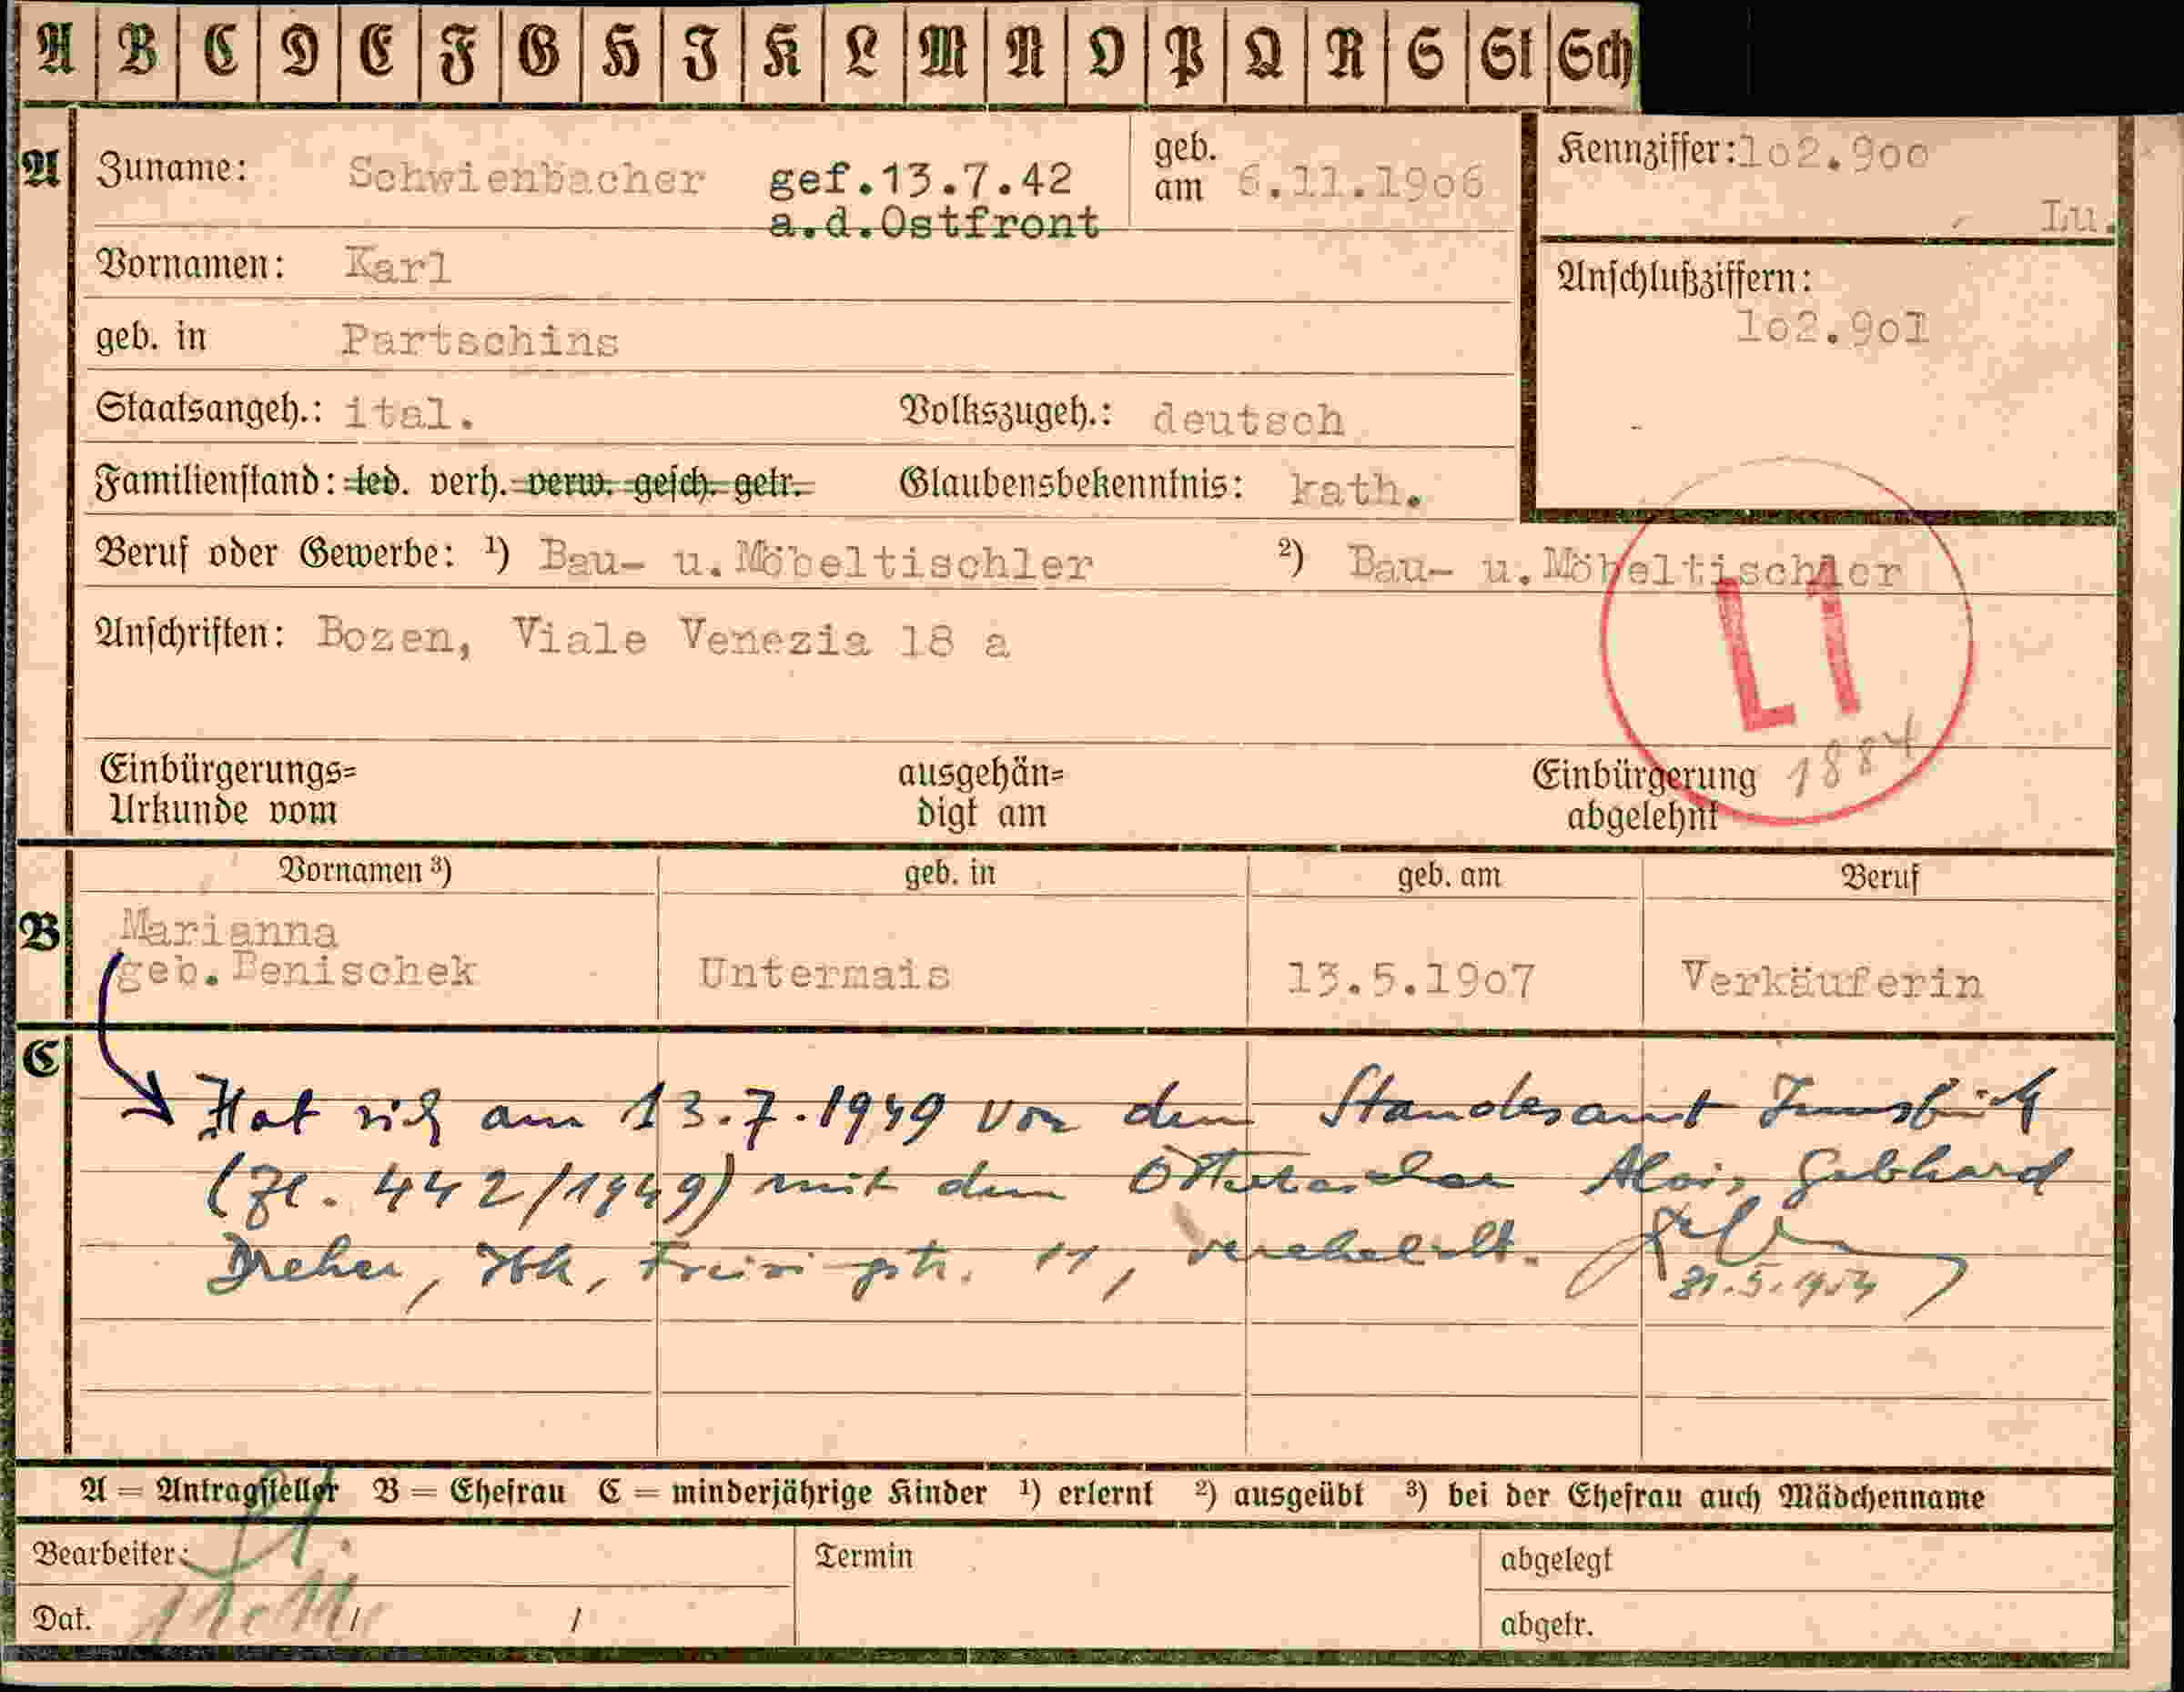 A B C D E F G H I K L M N O P Q R S St Sch
A Zuname: Schwienbacher gef.13.7.42 geb. am 6.11.1906 Kennziffer: 1o2.9oo
a.d.Ostfront Lu.
Vornamen: Karl Anschlußziffern:
geb. in Partschins 1o2.9o1
Staatsangeh.: ital. Volkszugeh.: deutsch
Familienstand: led. verh. verw. gesch. getr. Glaubensbekenntnis: kath.
Beruf oder Gewerbe: ¹) Bau- u. Möbeltischler ²) Bau- u. Möbeltischler
Anschriften: Bozen, Viale Venezia 18 a
L1
1884
Einbürgerungs= ausgehän= Einbürgerung
Urkunde vom digt am abgelehnt
Vornamen ³) geb. in geb. am Beruf
B Marianna
geb. Benischek Untermais 13.5.19o7 Verkäuferin
C
Hat sich am 13.7.1949 vor dem Standesamt Innsbruck
(Zl. 442/1949) mit dem Österreicher Alois Gebhard
Dreher, Ibk, 11, verehelicht.
31.5.1954
A = Antragsteller B = Ehefrau C = minderjährige Kinder ¹) erlernt ²) ausgeübt ³) bei der Ehefrau auch Mädchenname
Bearbeiter: Termin abgelegt
Dat. / / abgetr.